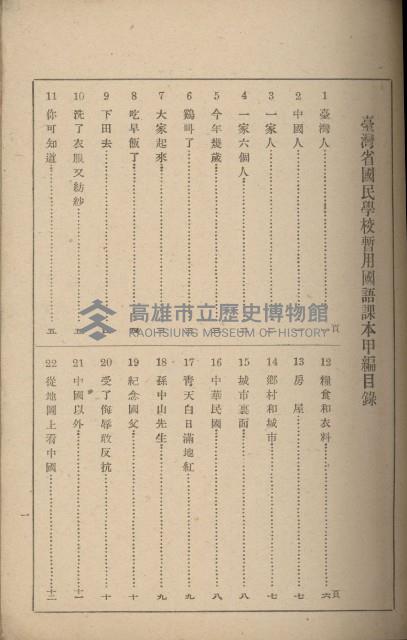 臺灣省國民學校暫用國語課本甲編目錄
1 臺灣人……一頁
2 中國人……一
3 一家人……一
4 一家六個人……二
5 今年幾歲……二
6 鷄叫了……三
7 大家起來……三
8 吃早飯了……四
9 下田去……四
10 洗了衣服又紡紗……五
11 你可知道……五
12 糧食和衣料……六頁
13 房屋……七
14 鄉村和城市……七
15 城市裏面……八
16 中華民國……八
17 靑天白日滿地紅……九
18 孫中山先生……九
19 紀念國父……十
20 受了侮辱敢反抗……十
21 中國以外……十一
22 從地圖上看中國……十二
一
高雄市立歷史博物館
KAOHSIUNG MUSEUM OF HISTORY